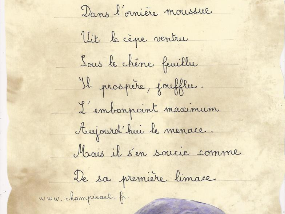 Dans l'ornière moussue
Vit le cèpe ventru
Sous le chêne feuillu
Il prospère, joufflu.
L'embonpoint maximum
Aujourd'hui le menace.
Mais il s'en soucie comme
De sa première limace.
www.champicact.fr